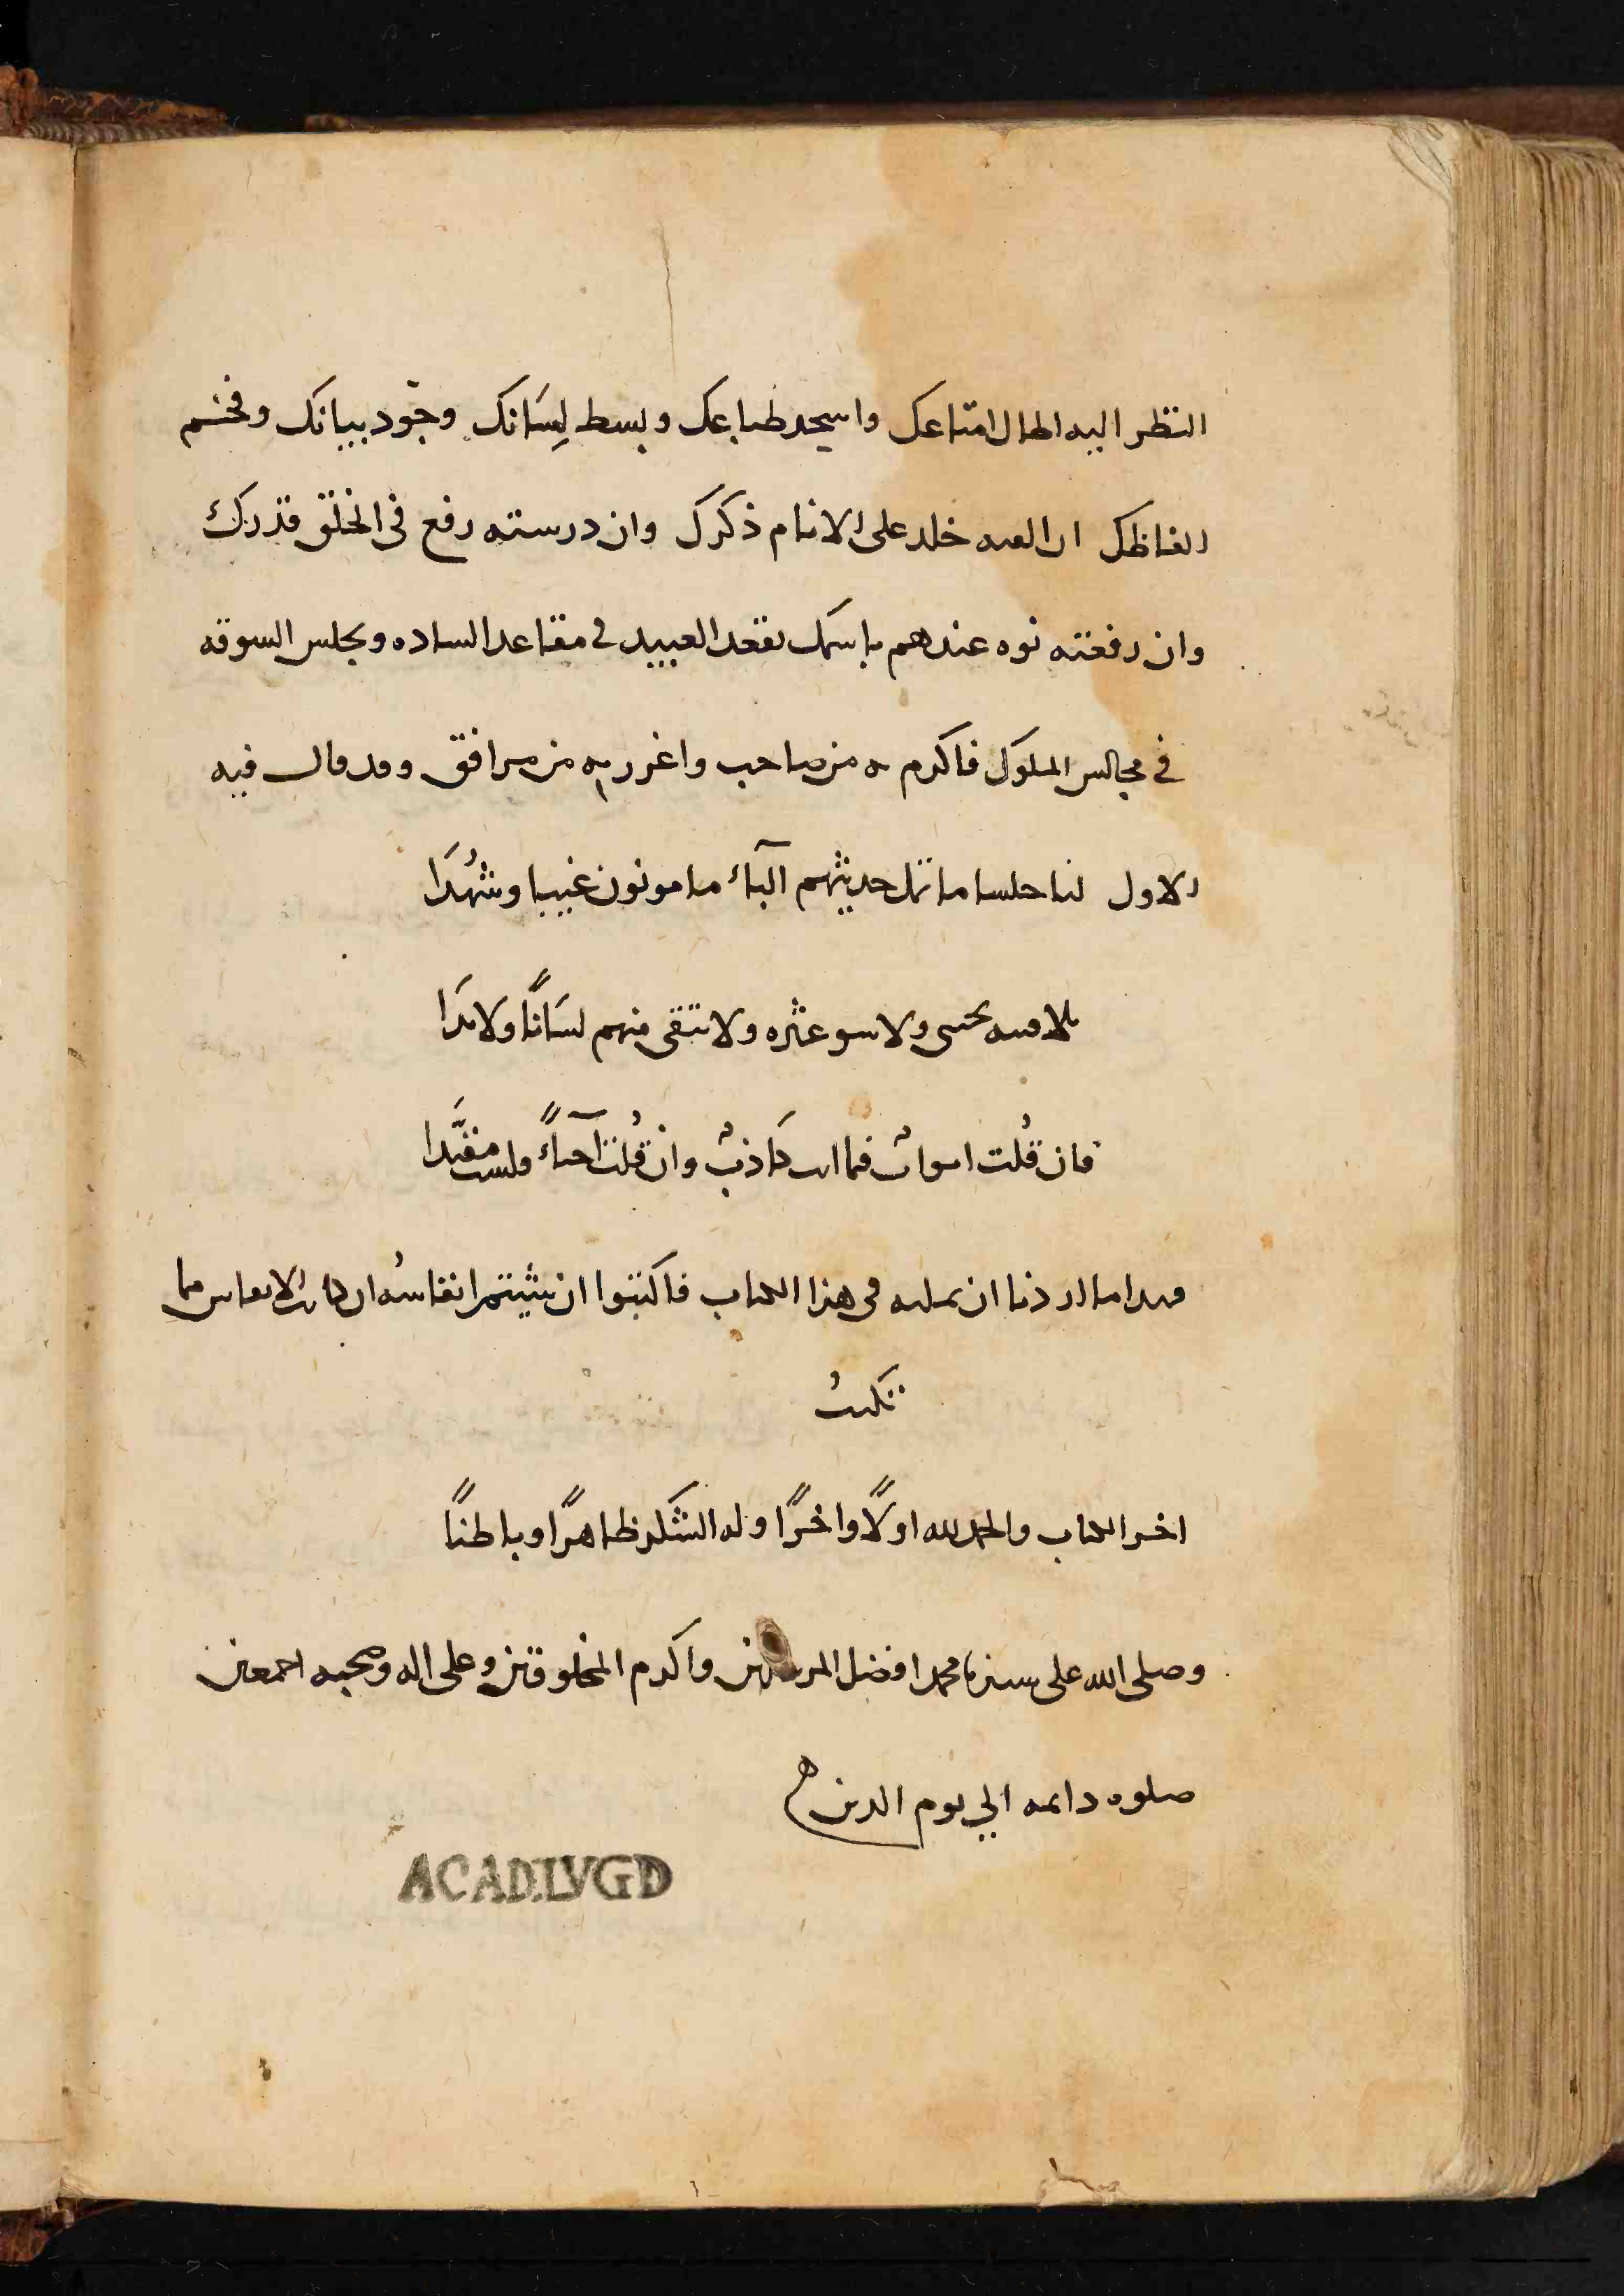 النظر اليه اطال امتاعك واسحد طباعك وبسط لِسَانك وجوّد بيانك وفخم
الفاظك ان الفته خلد على الانام ذكرك وان درسته رفع فى الخلق قدرك
وان رفعته نوه عندهم باسمك يقعد العبيد فى مقاعد الساده ويجلس السوقه
فى مجالس الملوك فاكرم به من صاحب واغرر به من مرافق وقد قال فيه
الاول لنا جلسا ما نمل حديثهم الباء مامونون غيبا وشُهدَا
بلا فتنه تخشى ولا سو عشره ولا تتقى منهم لسَانًا ولا يدَا
فان قُلت امواتٌ فما انت كَاذبٌ وان قُلت احياءً فلست مفنَّدا
فهذا ما اردنا ان نمليه فى هذا الكتاب فاكتبوا ان شيتم انفاسه ان كانت الانفاس مما
تكتبُ
اخر الكتاب والحمد لله اولًا واخرًا وله الشكر ظاهرًا وباطنًا
وصلى الله على سيدنا محمد افضل المرسلين واكرم المخلوقين وعلى اله وصحبه اجمعين
صلوه دايمه الي يوم الدين
ACAD.LVGD